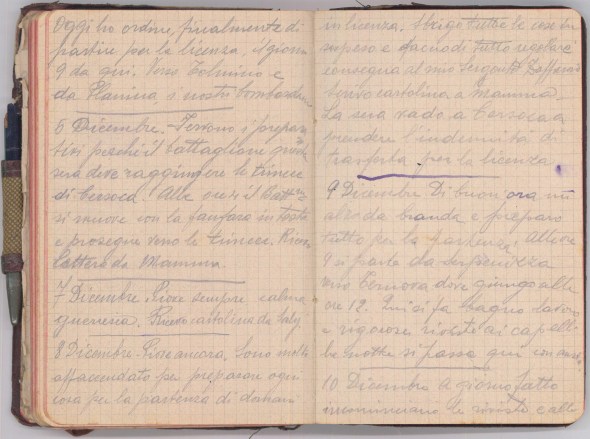 Oggi ho ordine, finalmente di
partire per la licenza, il giorno
9 da qui. Verso Tolmino e
da Planina, i nostri bombarda-
6 Dicembre. - Fervono i prepara
tivi perchè il battaglione
sera deve raggiungere le trincee
di Cersoca. Alle ore 4 il Batt.
si muove con la fanfara in testa
e prosegue verso le trincee. Ricevo
lettera da Mamma.
7 Dicembre. Piove sempre calma
guerresca. Ricevo cartolina da
8 Dicembre - Piove ancora. Sono molto
affaccendato per preparare ogni
cosa per la partenza di domani
in licenza. Strigo tutte le cose in
sospeso e facendo tutto regolare
consegna al mio Sergente
Scrivo cartolina a Mamma.
La sera vado a Cersoca a
prendere l'indennità di
trasferta per la licenza
9 Dicembre Di buon'ora mi
alzo da branda e preparo
tutto per la partenza. Alle ore
4 si parte da Serpenizza
verso Ternova dove giungo alle
ore 12. Qui si fa bagno lavoro
e rigorose riviste ai capelli
la notte si passa qui con
10 Dicembre A giorno fatto
incominciano le riviste e alle